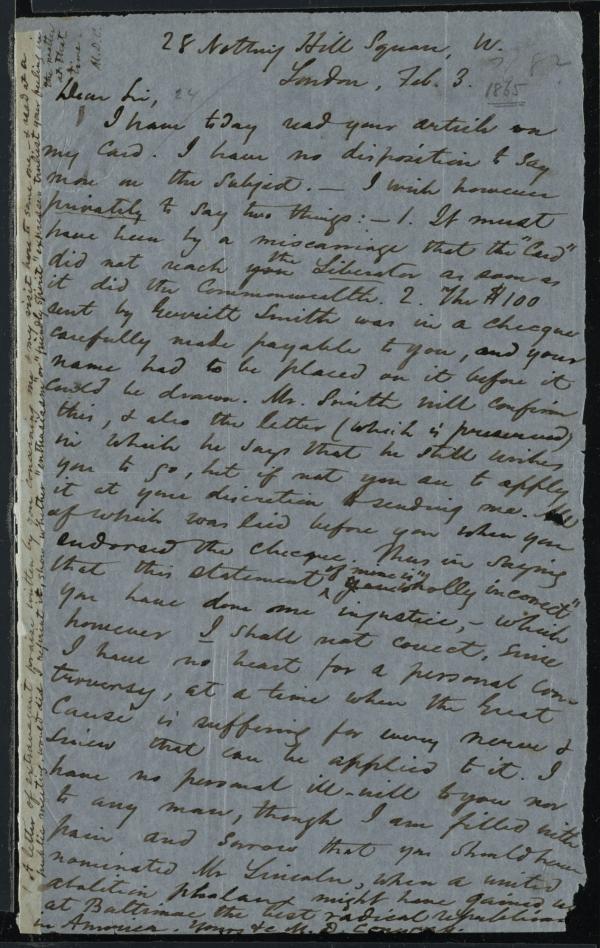 28 Notting Hill Square, W.
London, Feb. 3.
1865
82
24
Dear Sir,
I have today read your article on
my Card. I have no disposition to say
more on the subject. — I wish however
privately to say two things: — 1. It must
have been by a miscarriage that the "Card"
did not reach you the Liberator as soon as
it did the Commonwealth. 2. The $100
sent by Gerritt Smith was in a checque
carefully made payable to you, and your
name had to be placed on it before it
could be drawn. Mr. Smith will confirm
this, & also the letter (which is preserved)
in which he says that he still wishes
you to go, but if not you are to apply
it at your discretion to sending me. All
of which was lied before you when you
endorsed the checque. Thus in saying
that this statement "of mine is wholly incorrect"
you have done me injustice, — which
however I shall not correct, since
I have no heart for a personal con-
troversy, at a time when the Great
Cause is suffering for every nerve &
sinew that can be applied to it. I
have no personal ill-will to you nor
to any man, though I am filled with
pain and sorrow that you should have
nominated Mr Lincoln, when a united
abolition phalanx might have gained us
at Baltimore the best radical republican
in America. Yours &c M. D. Conway.
A letter of extravagant praise written by you concerning me & my visit here to some one, & read at a
public meeting, would seem to require it, "enthusiasm" or "friendly spirit" expresses truest your feeling in
the matter
at that
time.
M.D.C.